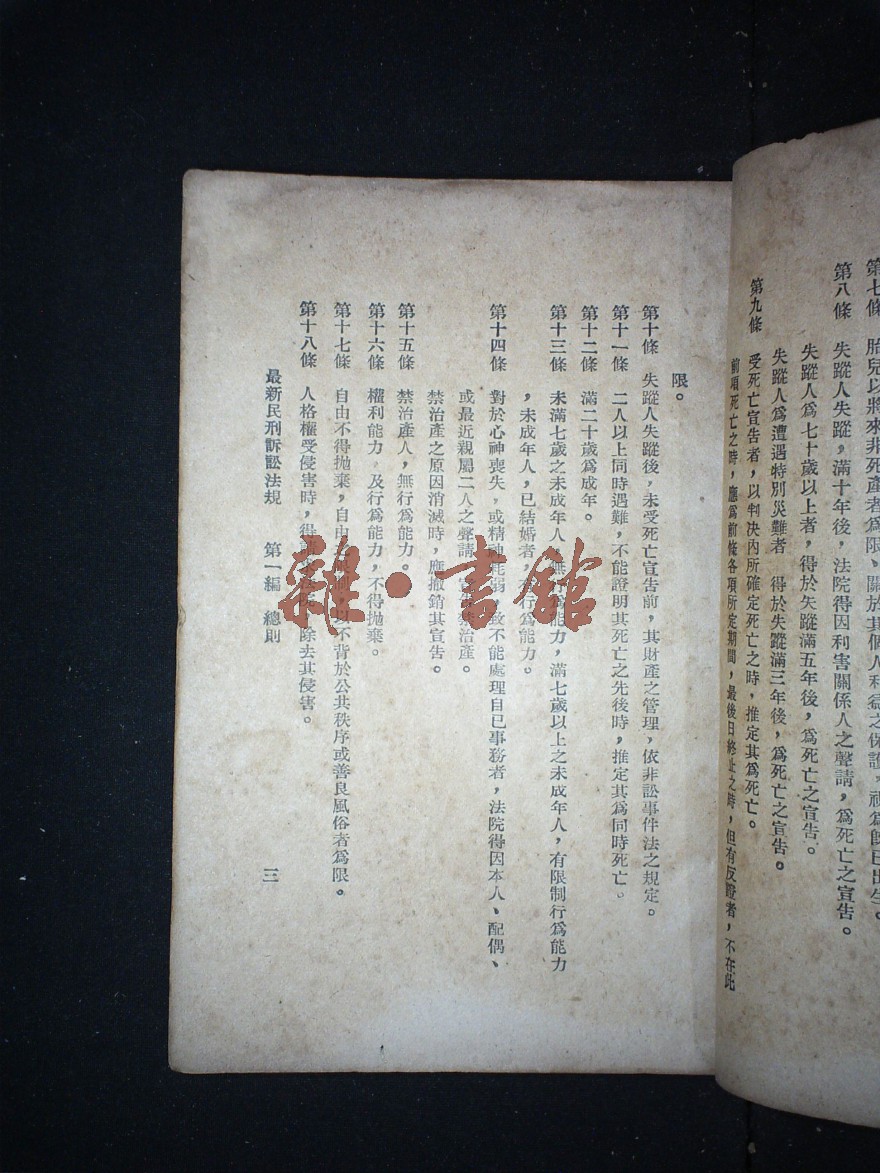 第七條　胎兒以將來非死產者爲限，關於其個人利益之保護，視爲旣已出生。
第八條　失蹤人失蹤，滿十年後，法院得因利害關係人之聲請，爲死亡之宣告。
失蹤人爲七十歲以上者，得於失蹤滿五年後，爲死亡之宣告。
失蹤人爲遭遇特別災難者　得於失蹤滿三年後，爲死亡之宣告。
第九條　受死亡宣告者，以判決內所確定死亡之時，推定其爲死亡。
前項死亡之時，應爲前條各項所定期間，最後日終止之時，但有反證者，不在此
限。
第十條　失蹤人失蹤後，未受死亡宣告前，其財產之管理，依非訟事件法之規定。
第十一條　二人以上同時遇難，不能證明其死亡之先後時，推定其爲同時死亡。
第十二條　滿二十歲爲成年。
第十三條　未滿七歲之未成年人，無行爲能力，滿七歲以上之未成年人，有限制行爲能力
，未成年人，已結婚者，有行爲能力。
第十四條　對於心神喪失，或精神耗弱，致不能處理自已事務者，法院得因本人、配偶、
或最近親屬二人之聲請，宣告禁治產。
禁治產之原因消滅時，應撤銷其宣告。
第十五條　禁治產人，無行爲能力。
第十六條　權利能力，及行爲能力，不得拋棄。
第十七條　自由不得拋棄，自由之限制，以不背於公共秩序或善良風俗者爲限。
第十八條　人格權受侵害時，得　　法院　除去其侵害。
最新民刑訴訟法規　第一編　總則　三
雜·書館